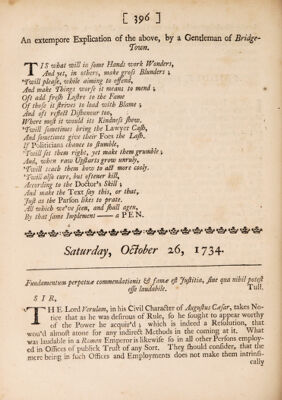 [ 396 ]
An extempore Explication of the above, by a Gentleman of Bridge-
Town.
'TIS what will in some Hands work Wonders,
And yet, in others, make gross Blunders;
'Twill please, while aiming to offend,
And make Things worse it means to mend;
Oft add fresh Lustre to the Fame
Of those it strives to load with Blame;
And oft reflect Dishonour too,
Where most it would its Kindness show.
'Twill sometimes bring the Lawyer Cash,
And sometimes give their Foes the Lash.
If Politicians chance to stumble,
'Twill set them right, yet make them grumble;
And, when raw Upstarts grow unruly,
'Twill teach them how to act more cooly.
'Twill also cure, but oftener kill,
According to the Doctor's Skill;
And make the Text say this, or that,
Just as the Parson likes to prate.
All which we've seen, and shall agen,
By that same Implement —— a PEN.
Saturday, October 26, 1734.
Fundamentum perpetuæ commendationis & famæ est Justitia, sine qua nihil potest
esse laudabile. Tull.
SIR,
THE Lord Verulam, in his Civil Character of Augustus Cæsar, takes No-
tice that as he was desirous of Rule, so he sought to appear worthy
of the Power he acquir'd; which is indeed a Resolution, that
wou'd almost atone for any indirect Methods in the coming at it. What
was laudable in a Roman Emperor is likewise so in all other Persons employ-
ed in Offices of publick Trust of any Sort. They should consider, that the
mere being in such Offices and Employments does not make them intrinsi-
cally